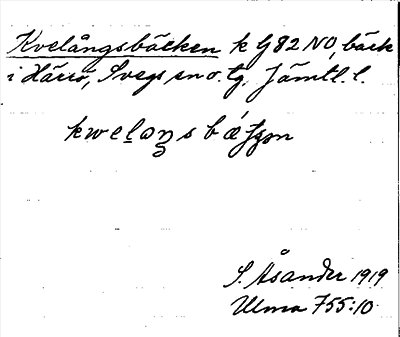 Kvelångsbäcken k G 82 NO, bäck
i Härrö, Svegs sn o. tg. Jämtl. l.
S. Åsander 1919
Ulma 755:10